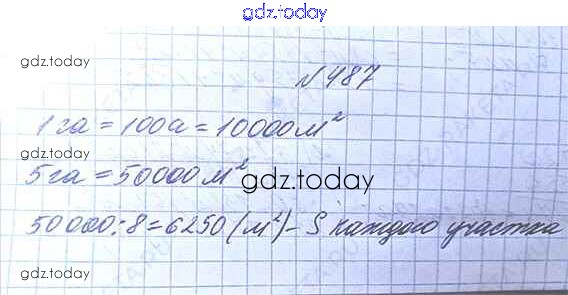 gdz.today
gdz.today
№487
1 га = 100а = 10000м²
gdz.today
5 га = 50000 м²
gdz.today
50000:8=6250(м²)– S каждого участка
gdz.today